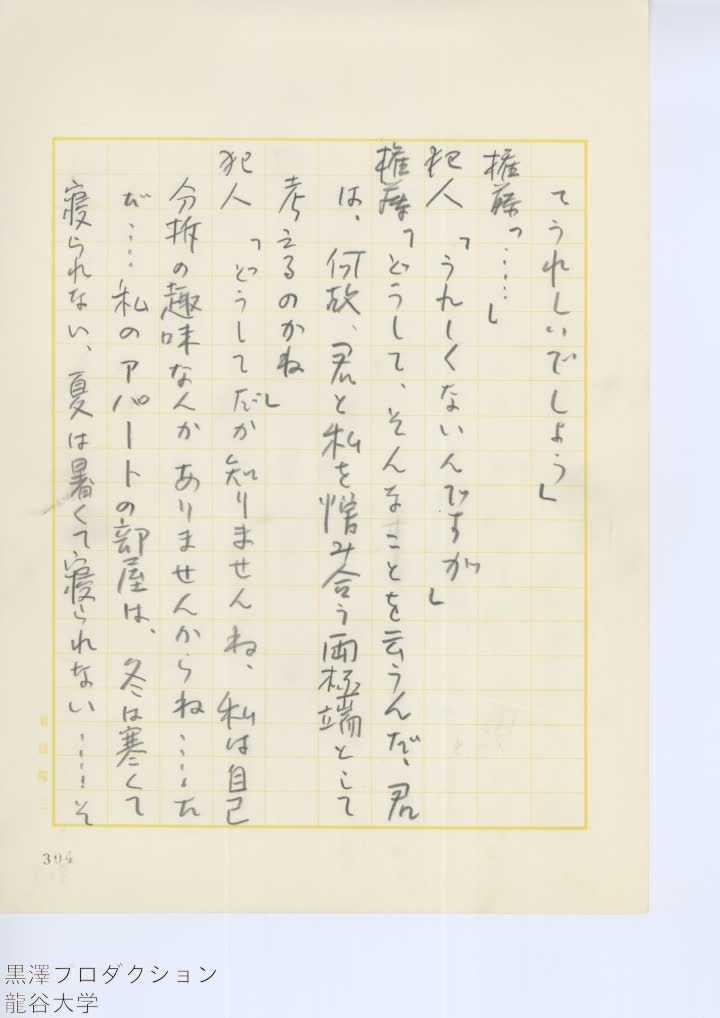 てうれしいでしょう」
権藤「……」
犯人「うれしくないんですか」
権藤「どうして、そんなことを云うんだ、君
は、何故、君と私を憎み合う両極端として
考えるのかね」
犯人「どうしてだか知りませんね、私は自己
分析の趣味なんかありませんからね……た
だ……私のアパートの部屋は、冬は寒くて
寝られない、夏は暑くて寝られない……そ
394
黒澤プロダクション
龍谷大学